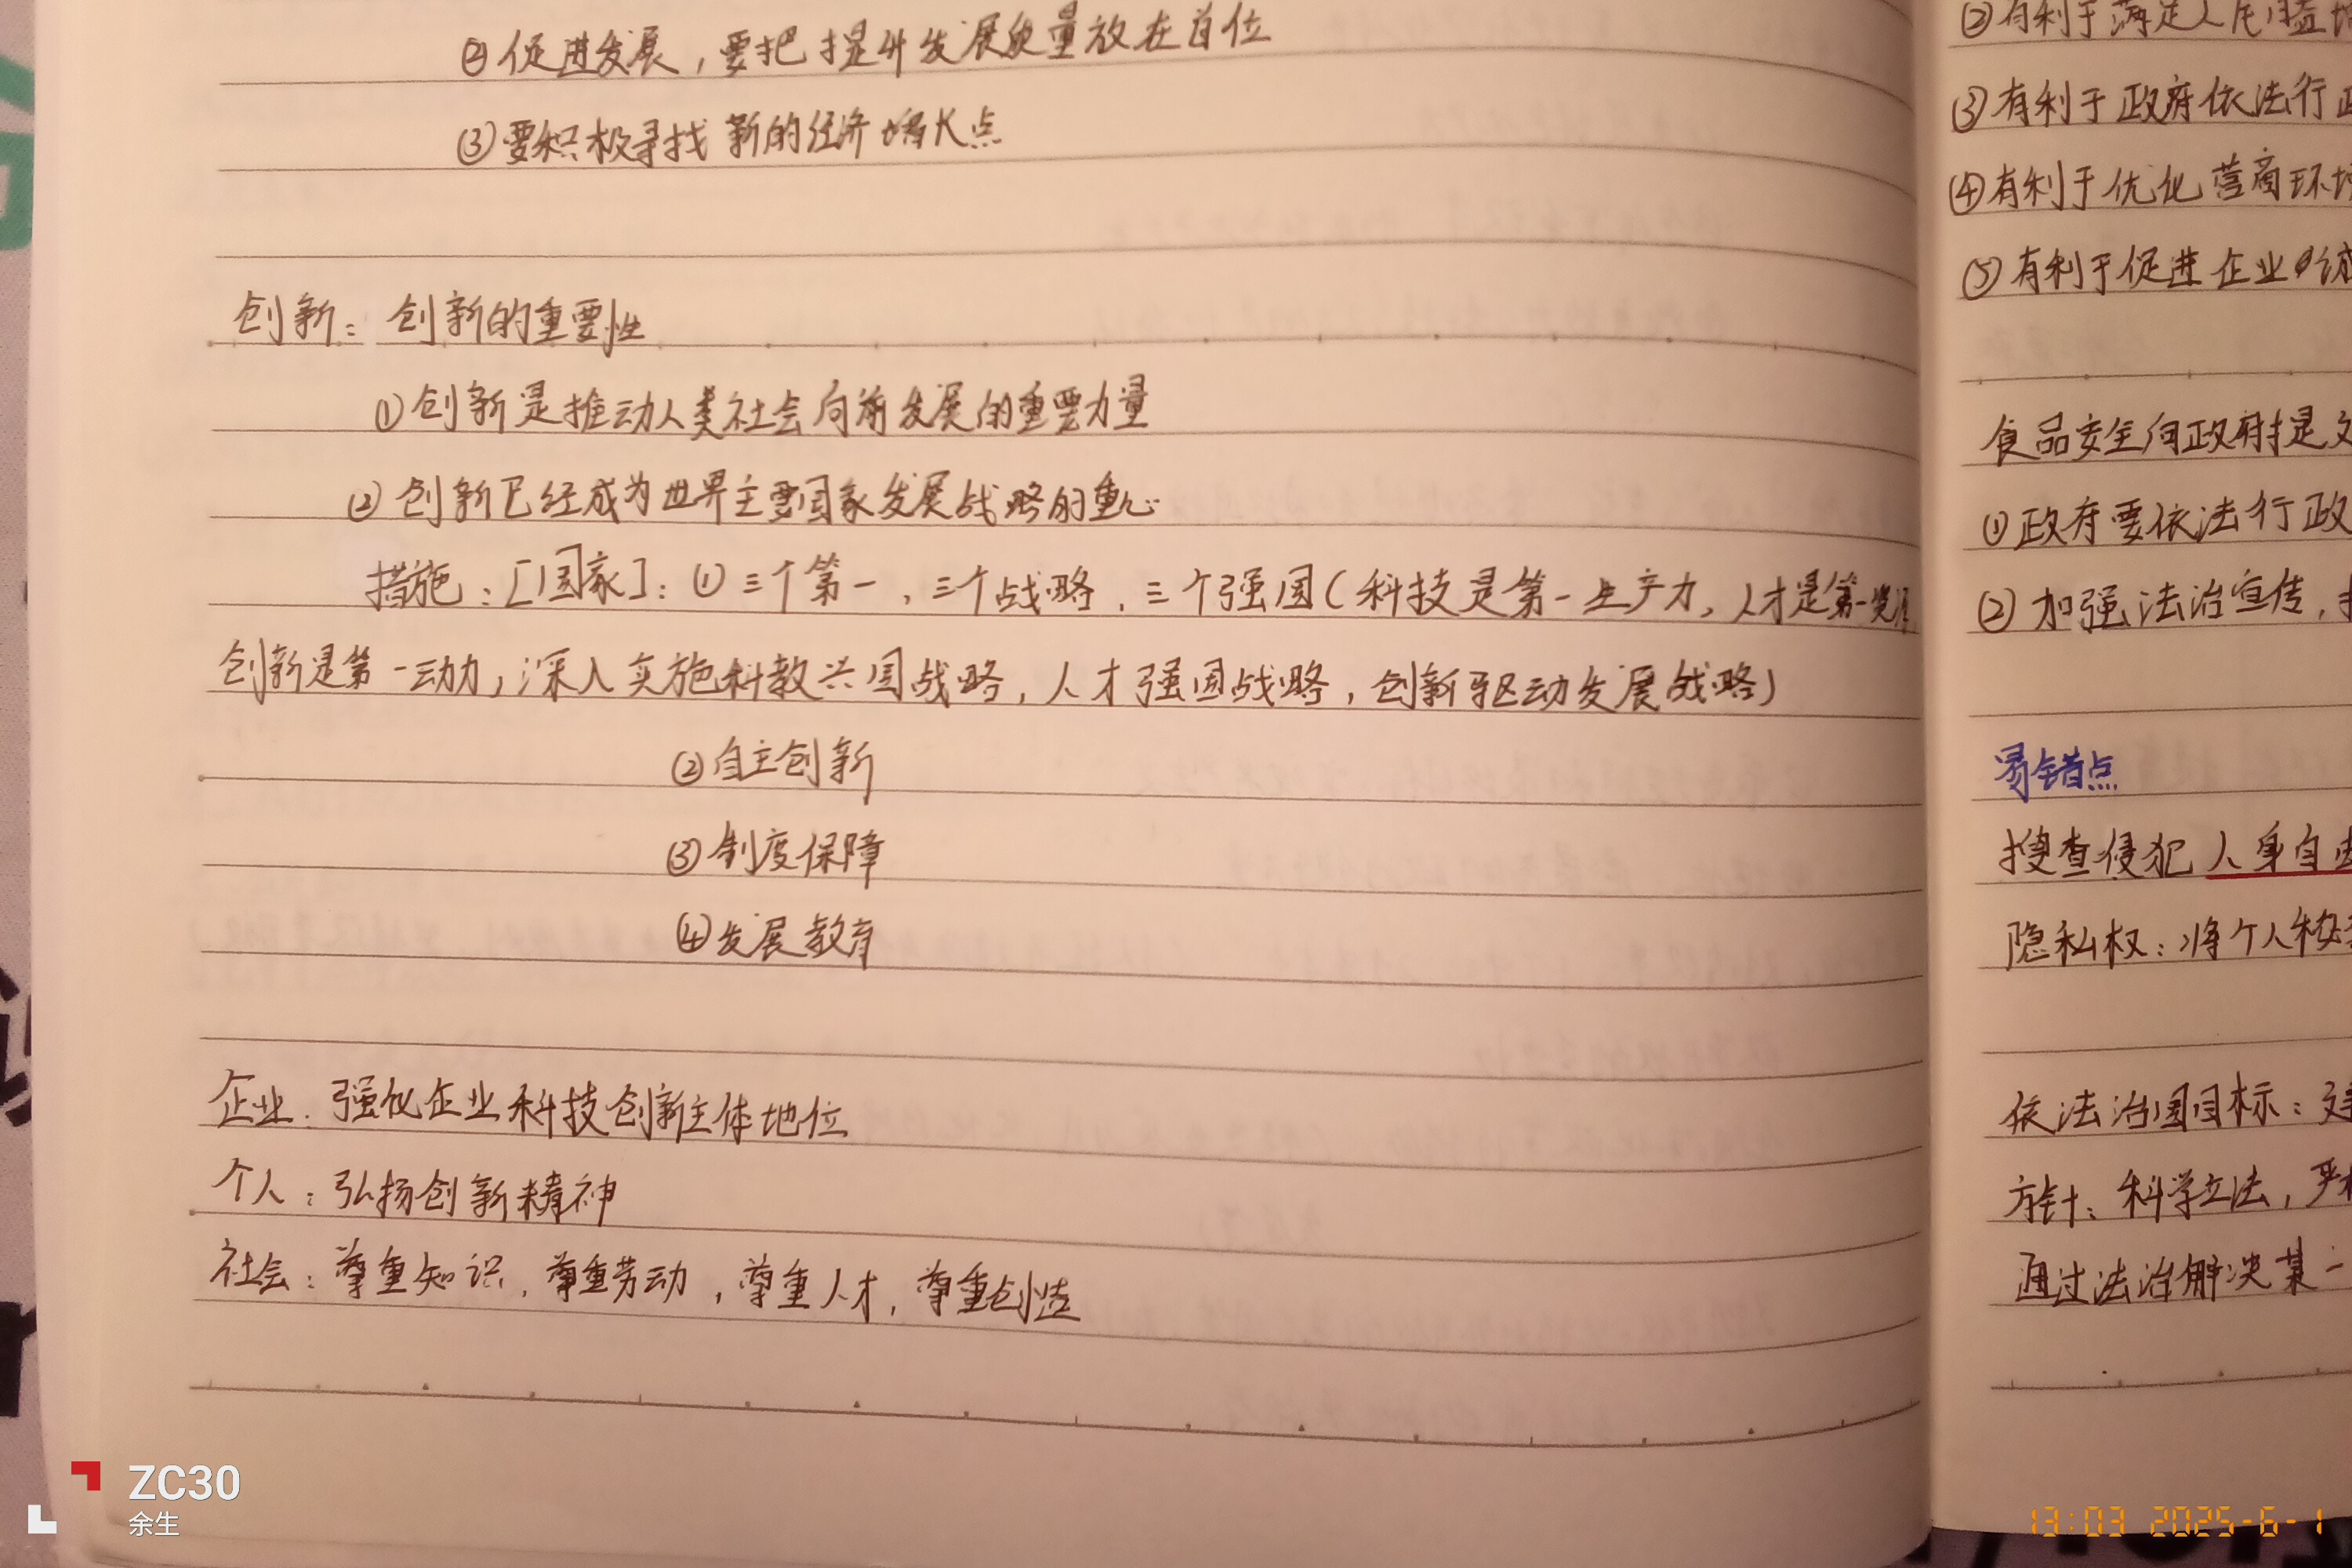 ②促进发展，要把提升发展质量放在首位
③要积极寻找新的经济增长点
创新：创新的重要性
①创新是推动人类社会向前发展的重要力量
②创新已经成为世界主要国家发展战略的重心
措施：[国家]：①三个第一，三个战略，三个强国(科技是第一生产力，人才是第一资源
创新是第一动力，深入实施科教兴国战略，人才强国战略，创新驱动发展战略)
②自主创新
③制度保障
④发展教育
企业：强化企业科技创新主体地位
个人：弘扬创新精神
社会：尊重知识，尊重劳动，尊重人才，尊重创造
②有利于满足人民日益增
③有利于政府依法行政
④有利于优化营商环境
⑤有利于促进企业
食品安全向政府提
①政府要依法行政
②加强法治宣传，
易错点
搜查侵犯人身自由
隐私权：将个人
依法治国目标：建
方针：科学立法，严
通过法治解决某一
ZC30
余生
13:03 2025-6-1